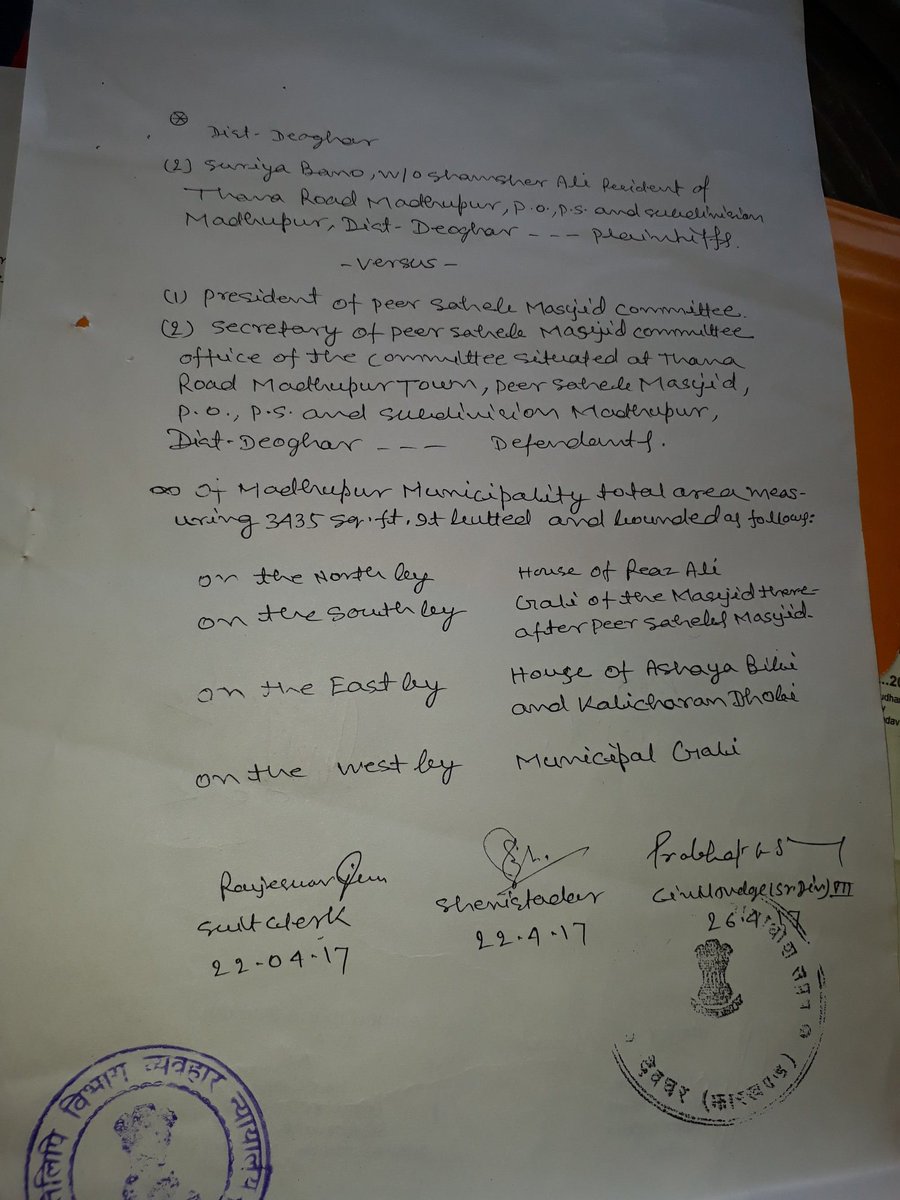 Dist- Deoghar
(2) Suriya Bano, w/o Shamsher Ali Resident of
Thana Road Madhupur, P.O., P.S. and subdivision
Madhupur, Dist- Deoghar --- Plaintiffs.
- Versus -
(1) President of Peer Saheb Masjid Committee.
(2) Secretary of Peer Saheb Masjid Committee
office of the committee situated at Thana
Road Madhupur Town, Peer Saheb Masjid,
P.O., P.S. and subdivision Madhupur,
Dist-Deoghar --- Defendants.
Of Madhupur Municipality total area meas-
uring 3435 sq.ft. It butted and bounded as follows:
on the North by House of Reaz Ali
on the South by Gali of the Masjid there-
after Peer Saheb Masjid.
on the East by House of Ashaya Bibi
and Kalicharan Dhobi
on the West by Municipal Gali
Suit Clerk
22-04-17
Sheristadar
22.4.17
Civil Judge (Sr. Div) III
26.4.17
देवघर (झारखण्ड)
विभाग व्यवहार न्यायालय